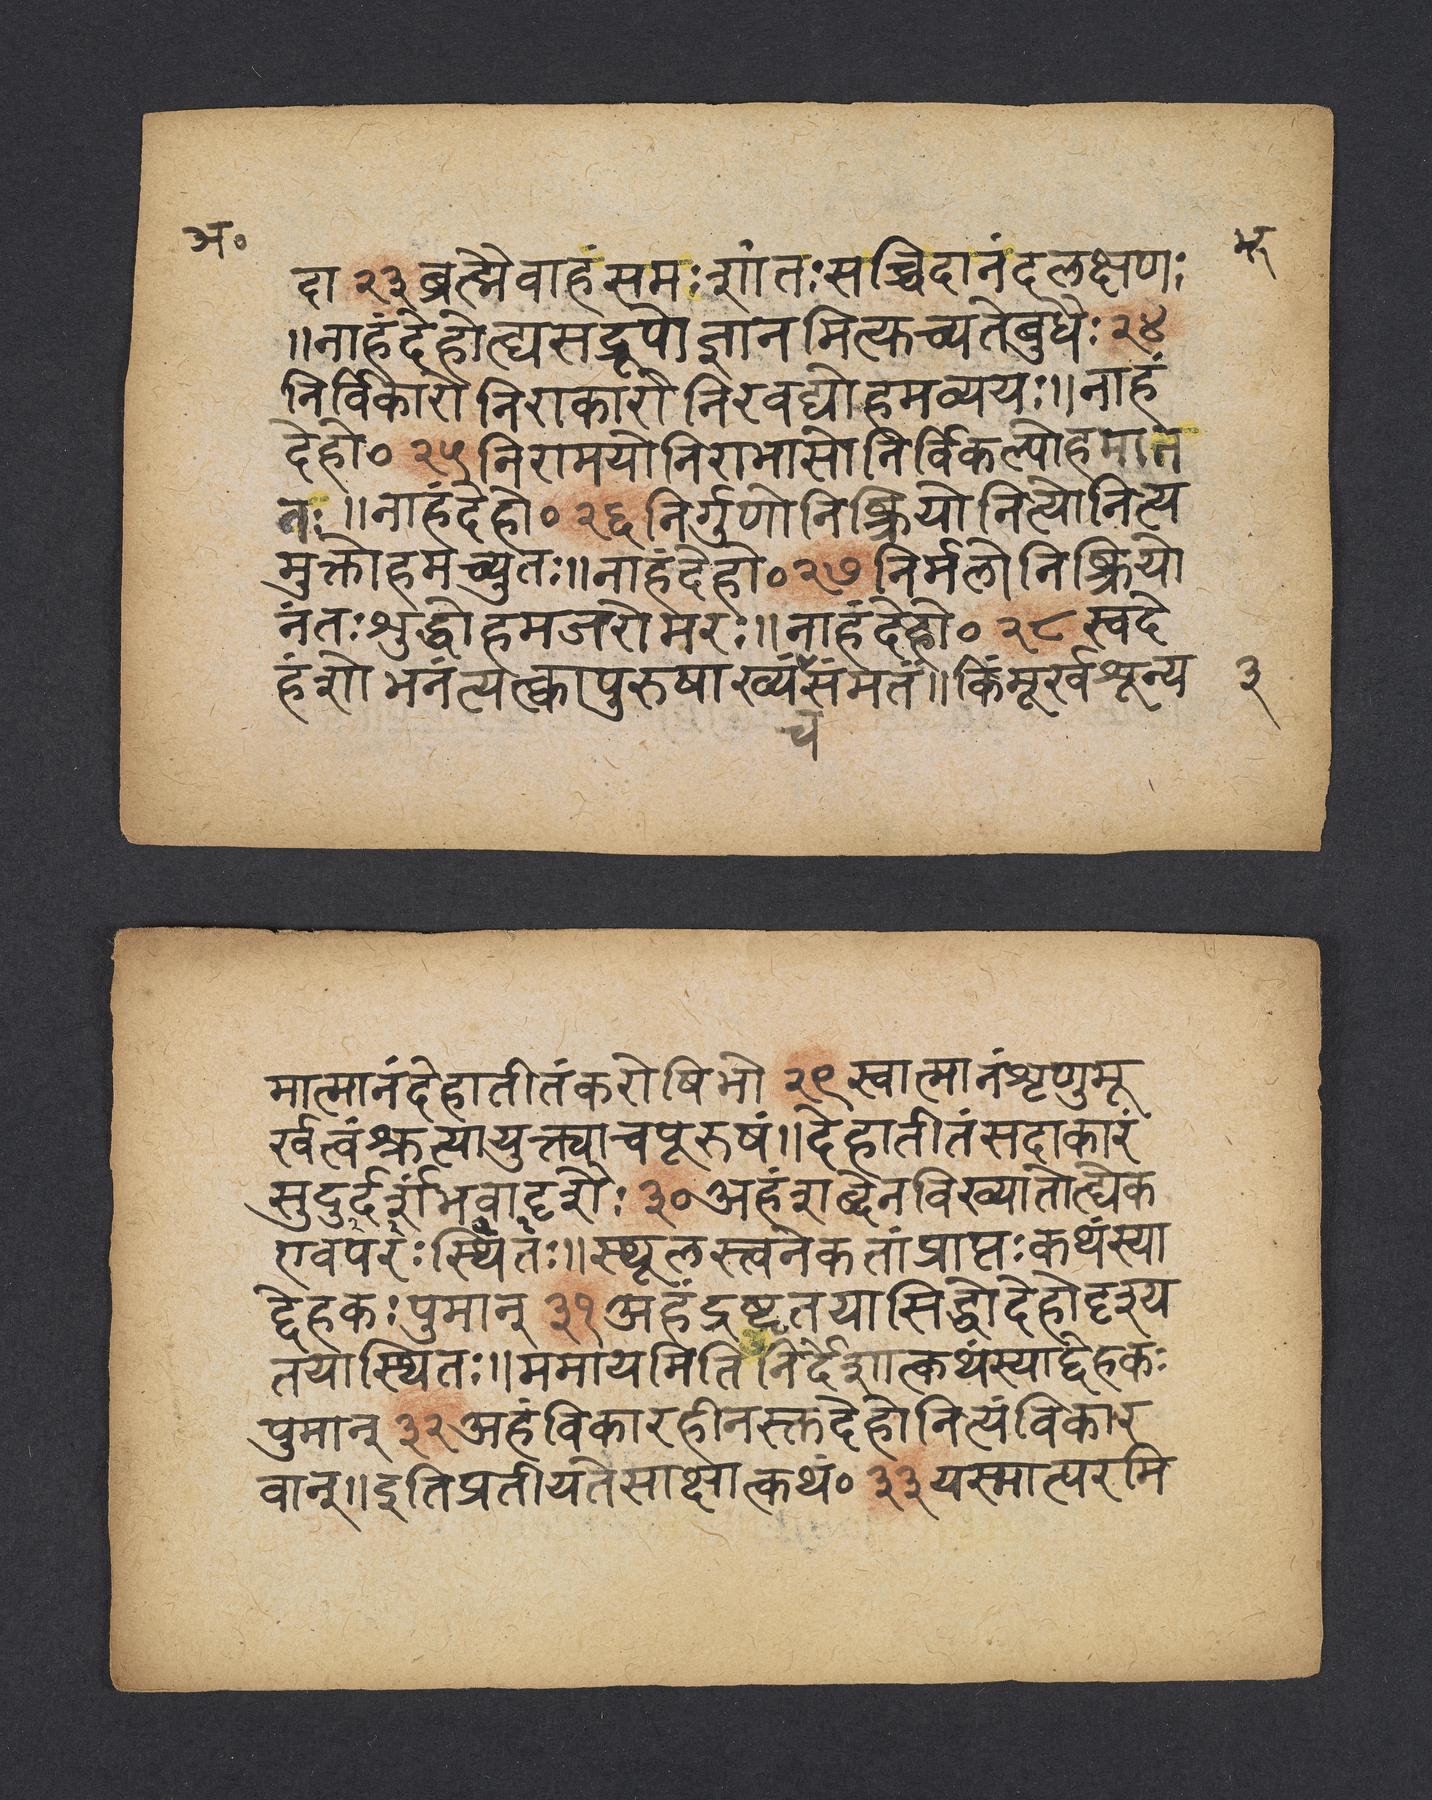 अ॰
भू
दा २३ ब्रह्मैवाहं समः शांतः सच्चिदानंदलक्षणः
॥ नाहं देहो ह्यसद्रूपो ज्ञानमित्युच्यते बुधैः २४
निर्विकारो निराकारो निरवद्योहमव्ययः ॥ नाहं
देहो॰ २५ निरामयो निराभासो निर्विकल्पोहमात
तः ॥ नाहं देहो॰ २६ निर्गुणो निष्क्रियो नित्यो नित्य
मुक्तोहमच्युतः ॥ नाहं देहो॰ २७ निर्मलो निष्क्रियो
नंतः शुद्धोहमजरोमरः ॥ नाहं देहो॰ २८ स्वदे
हं शोभनं त्यत्क्वा पुरुषाख्यं संमतं ॥ किं मूर्ख शून्य
३
च
मात्मानं देहातीतं करोषि भो २९ स्वात्मानं शृणु मू
र्ख त्वं श्रुत्या युक्त्या च पूरुषं ॥ देहातीतं सदाकारं
सुदुर्दर्शं भवादृशैः ३० अहं शब्देन विख्यातो ह्येक
एव परः स्थितः ॥ स्थूलस्त्वनेकतां प्राप्तः कथं स्या
द्देहकः पुमान् ३१ अहं द्रष्टृतया सिद्धो देहो दृश्य
तया स्थितः ॥ ममायमिति निर्देशात्कथं स्याद्देहकः
पुमान् ३२ अहं विकारहीनस्तु देहो नित्यं विकार
वान् ॥ इति प्रतीयते साक्षात्कथं॰ ३३ यस्मात्परमि